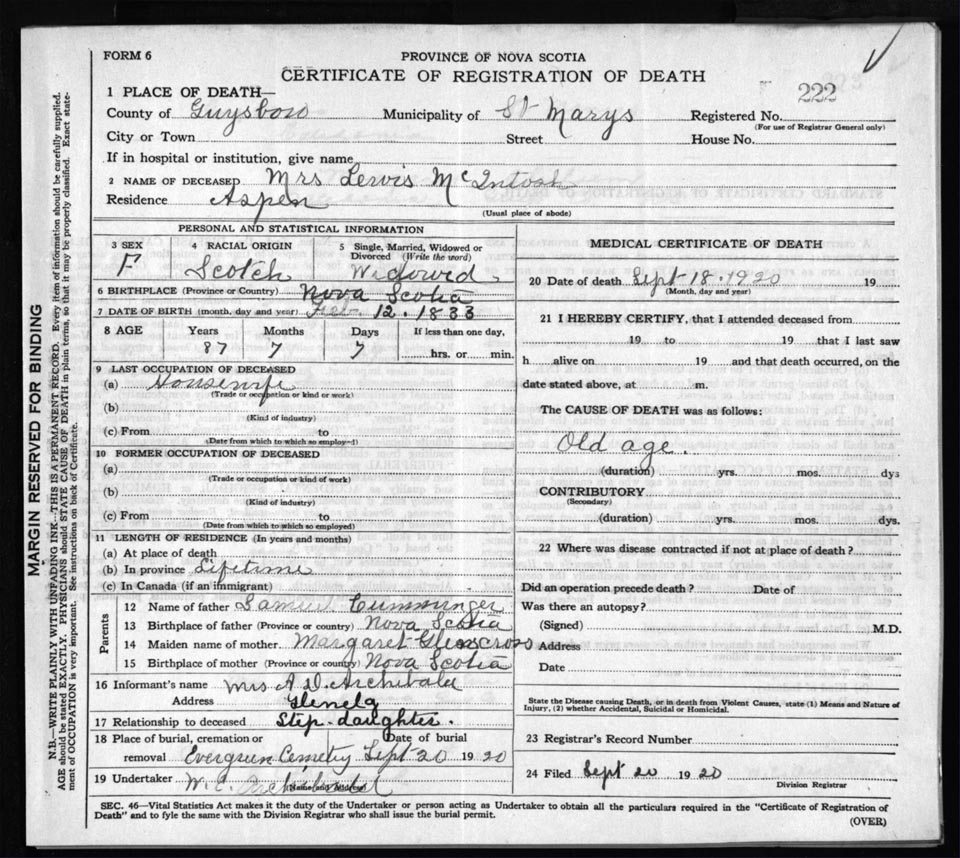 FORM 6
PROVINCE OF NOVA SCOTIA
CERTIFICATE OF REGISTRATION OF DEATH
222
1 PLACE OF DEATH—
County of Guysboro Municipality of St Marys Registered No.
(For use of Registrar General only)
City or Town Street House No.
If in hospital or institution, give name
2 NAME OF DECEASED Mrs Lewis McIntosh
Residence Aspen
(Usual place of abode)
PERSONAL AND STATISTICAL INFORMATION
3 SEX 4 RACIAL ORIGIN 5 Single, Married, Widowed or Divorced (Write the word)
F Scotch Widowed
6 BIRTHPLACE (Province or Country) Nova Scotia
7 DATE OF BIRTH (month, day and year) 12. 1833
8 AGE Years Months Days If less than one day,
87 7 7 hrs. or min.
9 LAST OCCUPATION OF DECEASED
(a) Housewife
(Trade or occupation or kind or work)
(b)
(Kind of industry)
(c) From to
(Date from which to which so employed)
10 FORMER OCCUPATION OF DECEASED
(a)
(Trade or occupation or kind of work)
(b)
(Kind of industry)
(c) From to
(Date from which to which so employed)
11 LENGTH OF RESIDENCE (In years and months)
(a) At place of death
(b) In province Lifetime
(c) In Canada (if an immigrant)
Parents
12 Name of father Samuel Cumminger
13 Birthplace of father (Province or country) Nova Scotia
14 Maiden name of mother Margaret Glencross
15 Birthplace of mother (Province or country) Nova Scotia
16 Informant's name Mrs A D Archibald
Address Glenelg
17 Relationship to deceased Step-daughter.
18 Place of burial, cremation or removal Date of burial
Evergreen Cemetry Sept 20 1920
19 Undertaker W. E.
(Name and Address)
MEDICAL CERTIFICATE OF DEATH
20 Date of death Sept 18. 1920 19
(Month, day and year)
21 I HEREBY CERTIFY, that I attended deceased from
19 to 19 that I last saw
h alive on 19 and that death occurred, on the
date stated above, at m.
The CAUSE OF DEATH was as follows:
Old age.
(duration) yrs. mos. dys
CONTRIBUTORY
(Secondary)
(duration) yrs. mos. dys.
22 Where was disease contracted if not at place of death?
Did an operation precede death? Date of
Was there an autopsy?
(Signed) M.D.
Address
Date
State the Disease causing Death, or in death from Violent Causes, state (1) Means and Nature of
Injury, (2) whether Accidental, Suicidal or Homicidal.
23 Registrar's Record Number
24 Filed Sept 20 1920
Division Registrar
SEC. 46—Vital Statistics Act makes it the duty of the Undertaker or person acting as Undertaker to obtain all the particulars required in the "Certificate of Registration of
Death" and to fyle the same with the Division Registrar who shall issue the burial permit.
(OVER)
MARGIN RESERVED FOR BINDING
N.B.—WRITE PLAINLY WITH UNFADING INK—THIS IS A PERMANENT RECORD. Every item of information should be carefully supplied.
AGE should be stated EXACTLY. PHYSICIANS should STATE CAUSE OF DEATH in plain terms, so that it may be properly classified. Exact state-
ment of OCCUPATION is very important. See instructions on back of Certificate.